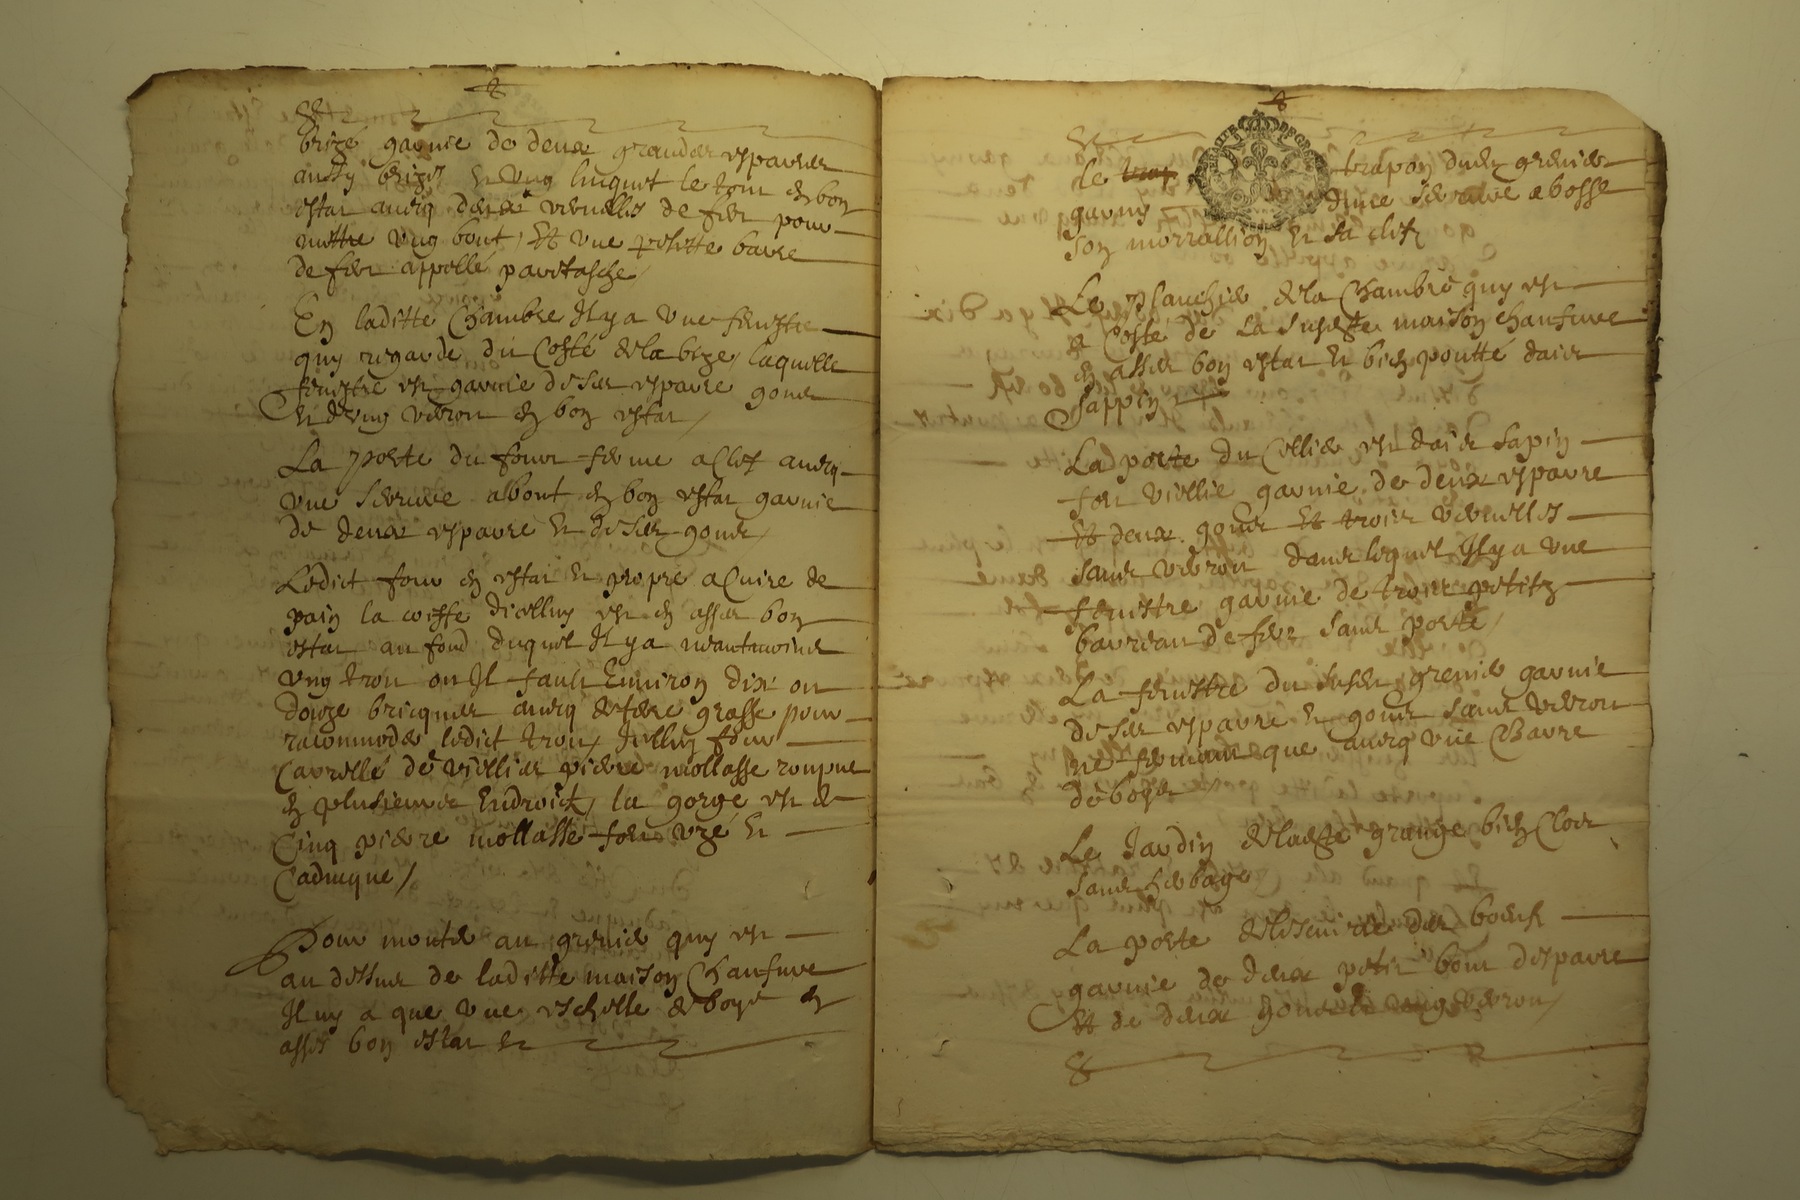 brizé garnie de deux grandes espares
aussy brizés et ung luquet le tout en bon
estat avecq deux vervelles de fert pour
mettre ung bout, Et une petitte barre
de fert appellé partasche /
En laditte Chambre Il y a une fenestre
quy regarde du Costé de la bize, laquelle
fenestre est garnie de ses espare gons
et d'ung verrou en bon estat /
La porte du four ferme a Clef avecq
une serrure a bout en bon estat garnie
de deux espare et de ses gons /
Ledict four en estat et propre a Cuire de
pain la coiffe d'icelluy est en asses bon
estat au fond duquel Il y a neantmoins
ung trou ou Il fault Environ dix ou
douze bricques avecq de terre grasse pour
racommoder ledict trou, Icelluy four
Carrellé de viellies pierre mollasse rompue
en plusieurs Endroict, la gorge est de
Cinq pierre mollasse fort uzé et
Caducque /
Pour monter au grenier quy est
au dessus de laditte maison Chanfure
Il ny a que une eschelle de boys en
asses bon estat et
le trap trapon dudt grenier
garny d'une serrure a bosse
son morrallion et sa clefz
Le Planchié de la Chambre quy est
a Costé de la susdte maison chanfure
en asses bon estat et bien poutté d'aies
sappin
La porte du Cellier est d'aies sapin
fort viellie garnie de deux espare
Et deux gons Et trois vervelles
sans verrou dans lequel Il y a une
fenestre garnie de trois petitz
barreau de fert sans porte /
La fenestre du susdt grenier garnie
de ses espare et gons sans verrou
ne fermant que avecq une Barre
de boys
Le Jardin de ladte grange bien Clos
sans herbage
La porte de l'escuirie des boeufz
garnie de deux petit bout d'espare
Et de deux gons et ung verrou /